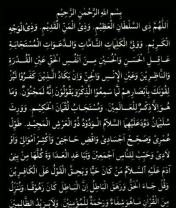 بِسْمِ اللهِ الرَّحْمٰنِ الرَّحِيْمِ
اَللّٰهُمَّ ذِي السُّلْطَانِ الْعَظِيْمِ. وَذِي الْمَنِّ الْقَدِيْمِ. وَذِي الْوَجْهِ
الْكَرِيْمِ. وَوَلِيِّ الْكَلِمَاتِ التَّامَّاتِ وَالدَّعَوَاتِ الْمُسْتَجَابَةِ
عَاقِلِ الْحَسَنِ وَالْحُسَيْنِ مِنْ اَنْفُسِ الْحَقِّ عَيْنِ الْقُدْرَةِ
وَالنَّاظِرِيْنَ وَعَيْنِ الْاِنْسِ وَالْجِنِّ وَاِنْ يَكَادُ الَّذِيْنَ كَفَرُوْا لَيُزْ
لِقُوْنَكَ بِاَبْصَارِهِمْ لَمَّا سَمِعُوا الذِّكْرَ وَيَقُوْلُوْنَ اِنَّهُ لَمَجْنُوْنٌ. وَمَا
هُوَ اِلَّا ذِكْرٌ لِلْعَالَمِيْنَ. وَمُسْتَجَابُ لُقْمَانَ الْحَكِيْمِ. وَوَرِثَ
سُلَيْمَانُ دَاوُدَ عَلَيْهِمَا السَّلَامُ الْوَدُوْدُ ذُو الْعَرْشِ الْمَجِيْدِ. طَوِّلْ
عُمْرِيْ وَصَحِّحْ اَجْسَادِيْ وَاقْضِ حَاجَتِيْ وَاَكْثِرْ اَمْوَالِيْ وَاَوْ
لَادِيْ وَحَبِّبْ لِلنَّاسِ اَجْمَعِيْنَ وَتَبَاعَدِ الْعَدَاوَةَ كُلَّهَا مِنْ بَنِيْ
اٰدَمَ عَلَيْهِ السَّلَامُ مَنْ كَانَ حَيًّا وَيَحِقَّ الْقَوْلُ عَلَى الْكَافِرِيْنَ
وَقُلْ جَاءَ الْحَقُّ وَزَهَقَ الْبَاطِلُ اِنَّ الْبَاطِلَ كَانَ زَهُوْقًا. وَنُنَزِّلُ
مِنَ الْقُرْاٰنِ مَا هُوَ شِفَاءٌ وَرَحْمَةٌ لِلْمُؤْمِنِيْنَ. وَلَا يَزِيْدُ الظَّالِمِيْنَ